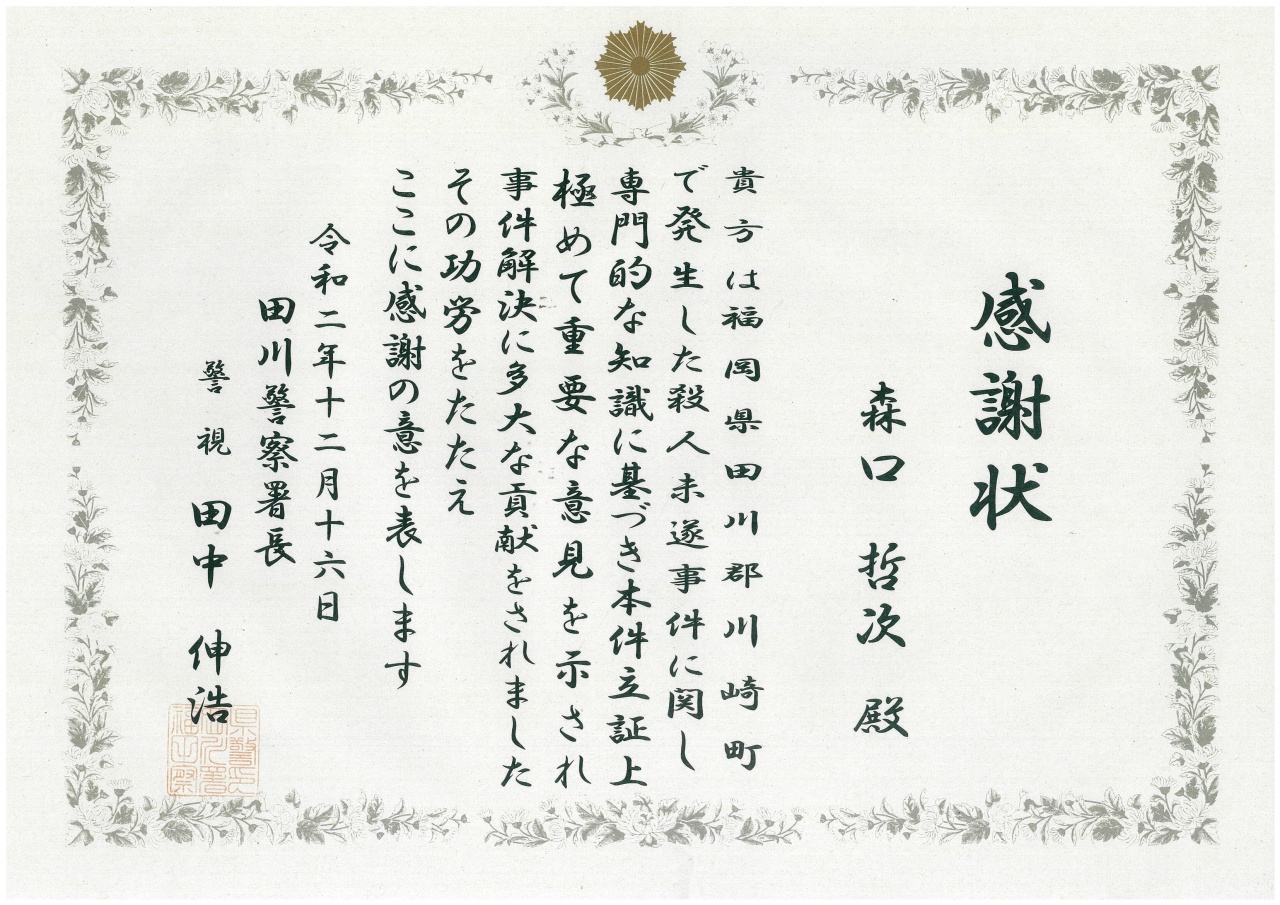 感謝状
森口 哲次 殿
貴方は福岡県田川郡川崎町
で発生した殺人未遂事件に関し
専門的な知識に基づき本件立証上
極めて重要な意見を示され
事件解決に多大な貢献をされました
その功労をたたえ
ここに感謝の意を表します
令和二年十二月十六日
田川警察署長
警視 田中 伸浩